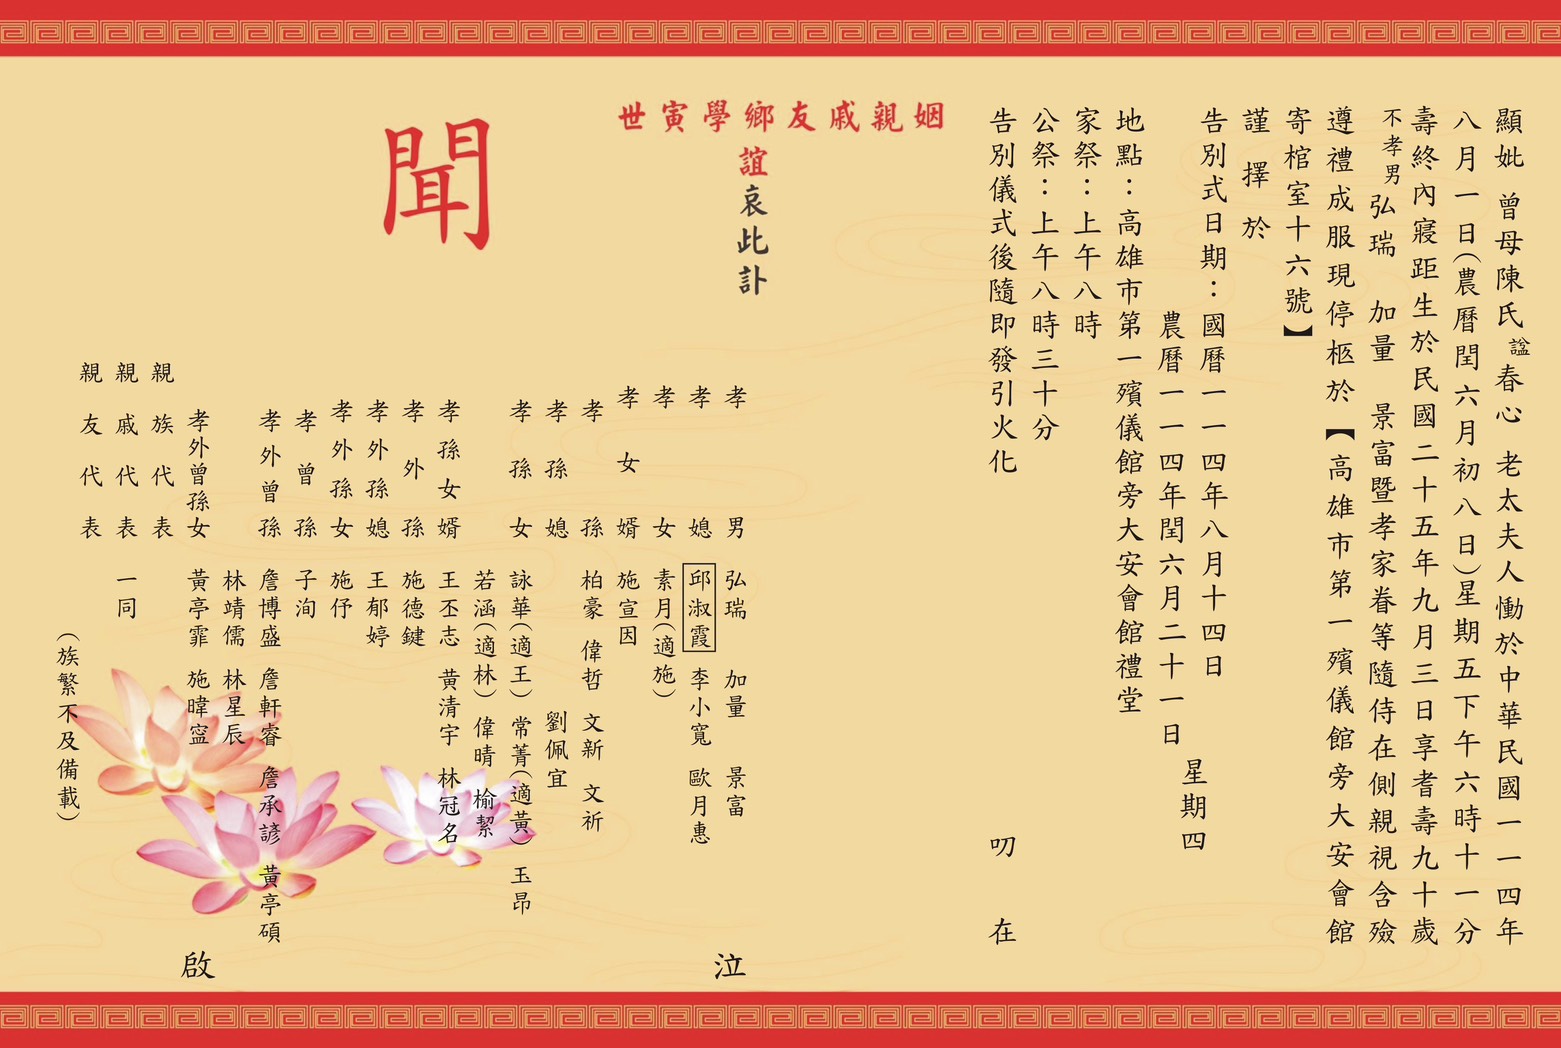 顯妣 曾母陳氏諡春心 老太夫人慟於中華民國一一四年
八月一日(農曆閏六月初八日)星期五下午六時十一分
壽終內寢距生於民國二十五年九月三日享耆壽九十歲
不孝男弘瑞 加量 景富暨孝家眷等隨侍在側親視含殮
遵禮成服現停柩於【高雄市第一殯儀館旁大安會館
寄棺室十六號】
謹擇於
告別式日期：國曆一一四年八月十四日
農曆一一四年閏六月二十一日
星期四
地點：高雄市第一殯儀館旁大安會館禮堂
家祭：上午八時
公祭：上午八時三十分
告別儀式後隨即發引火化
叨在
姻親戚友鄉學寅世
誼哀此訃
聞
孝男 弘瑞 加量 景富
孝媳 邱淑霞 李小寬 歐月惠
孝女 素月(適施)
孝女婿 施宣因
孝孫 柏豪 偉哲 文新 文祈
孝孫媳 劉佩宜
孝孫女 詠華(適王) 常菁(適黃) 玉昂
若涵(適林) 偉晴 榆絜
孝孫女婿 王丕志 黃清宇 林冠名
孝外孫 施德鍵
孝外孫媳 王郁婷
孝外孫女 施伃
孝曾孫 子洵
孝外曾孫 詹博盛 詹軒睿 詹承諺 黃亭碩
林靖儒 林星辰
孝外曾孫女 黃亭霏 施暐寍
親族代表
親戚代表 一同
親友代表
(族繁不及備載)
泣
啟